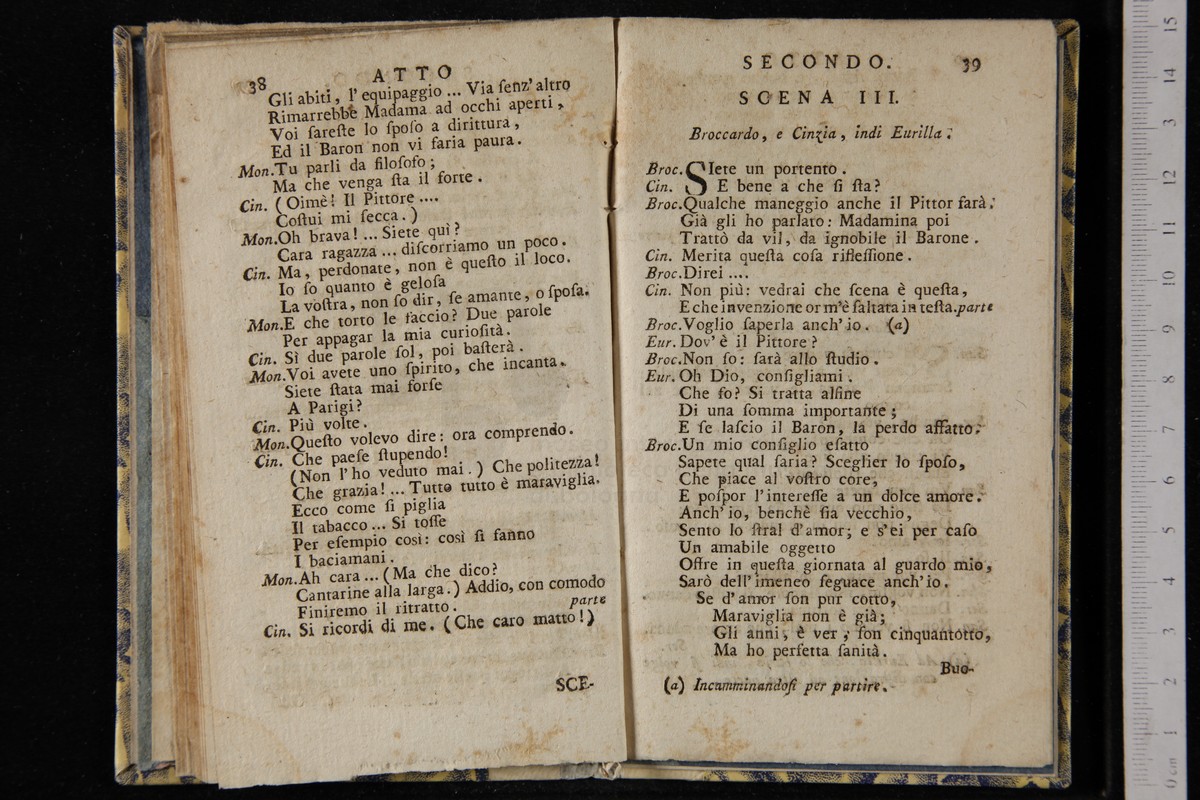 38 ATTO
Gli abiti, l'equipaggio ... Via ſenz'altro
Rimarrebbe Madama ad occhi aperti,
Voi fareſte lo ſpoſo a dirittura,
Ed il Baron non vi faria paura.
Mon.Tu parli da filoſofo;
Ma che venga ſta il forte.
Cin. (Oimè! Il Pittore ....
Coſtui mi ſecca.)
Mon.Oh brava! ... Siete quì?
Cara ragazza ... diſcorriamo un poco.
Cin. Ma, perdonate, non è queſto il loco.
Io ſo quanto è geloſa
La voſtra, non ſo dir, ſe amante, o ſpoſa.
Mon.E che torto le faccio? Due parole
Per appagar la mia curioſità.
Cin. Sì due parole ſol, poi baſterà.
Mon.Voi avete uno ſpirito, che incanta.
Siete ſtata mai forſe
A Parigi?
Cin. Più volte.
Mon.Queſto volevo dire: ora comprendo.
Cin. Che paeſe ſtupendo!
(Non l'ho veduto mai.) Che politezza!
Che grazia! ... Tutto tutto è maraviglia.
Ecco come ſi piglia
Il tabacco ... Si toſſe
Per eſempio così: così ſi fanno
I baciamani.
Mon.Ah cara ... (Ma che dico?
Cantarine alla larga.) Addio, con comodo
Finiremo il ritratto. parte
Cin. Si ricordi di me. (Che caro matto!)
SCE-
SECONDO. 39
SCENA III.
Broccardo, e Cinzia, indi Eurilla.
Broc.SIete un portento.
Cin. E bene a che ſi ſta?
Broc.Qualche maneggio anche il Pittor farà.
Già gli ho parlato: Madamina poi
Trattò da vil, da ignobile il Barone.
Cin. Merita queſta coſa rifleſſione.
Broc.Direi ....
Cin. Non più: vedrai che ſcena è queſta,
E che invenzione or m'è ſaltata in teſta.parte
Broc.Voglio ſaperla anch'io. (a)
Eur. Dov'è il Pittore?
Broc.Non ſo: ſarà allo ſtudio.
Eur. Oh Dio, conſigliami.
Che fo? Si tratta alfine
Di una ſomma importante;
E ſe laſcio il Baron, la perdo affatto.
Broc.Un mio conſiglio eſatto
Sapete qual ſaria? Sceglier lo ſpoſo,
Che piace al voſtro core,
E poſpor l'intereſſe a un dolce amore.
Anch'io, benchè ſia vecchio,
Sento lo ſtral d'amor; e s'ei per caſo
Un amabile oggetto
Offre in queſta giornata al guardo mio,
Sarò dell'imeneo ſeguace anch'io.
Se d'amor ſon pur cotto,
Maraviglia non è già;
Gli anni, è ver, ſon cinquantotto,
Ma ho perfetta ſanità.
Buo-
(a) Incamminandoſi per partire.
15
14
13
12
11
10
9
8
7
6
5
4
3
2
1
0 cm